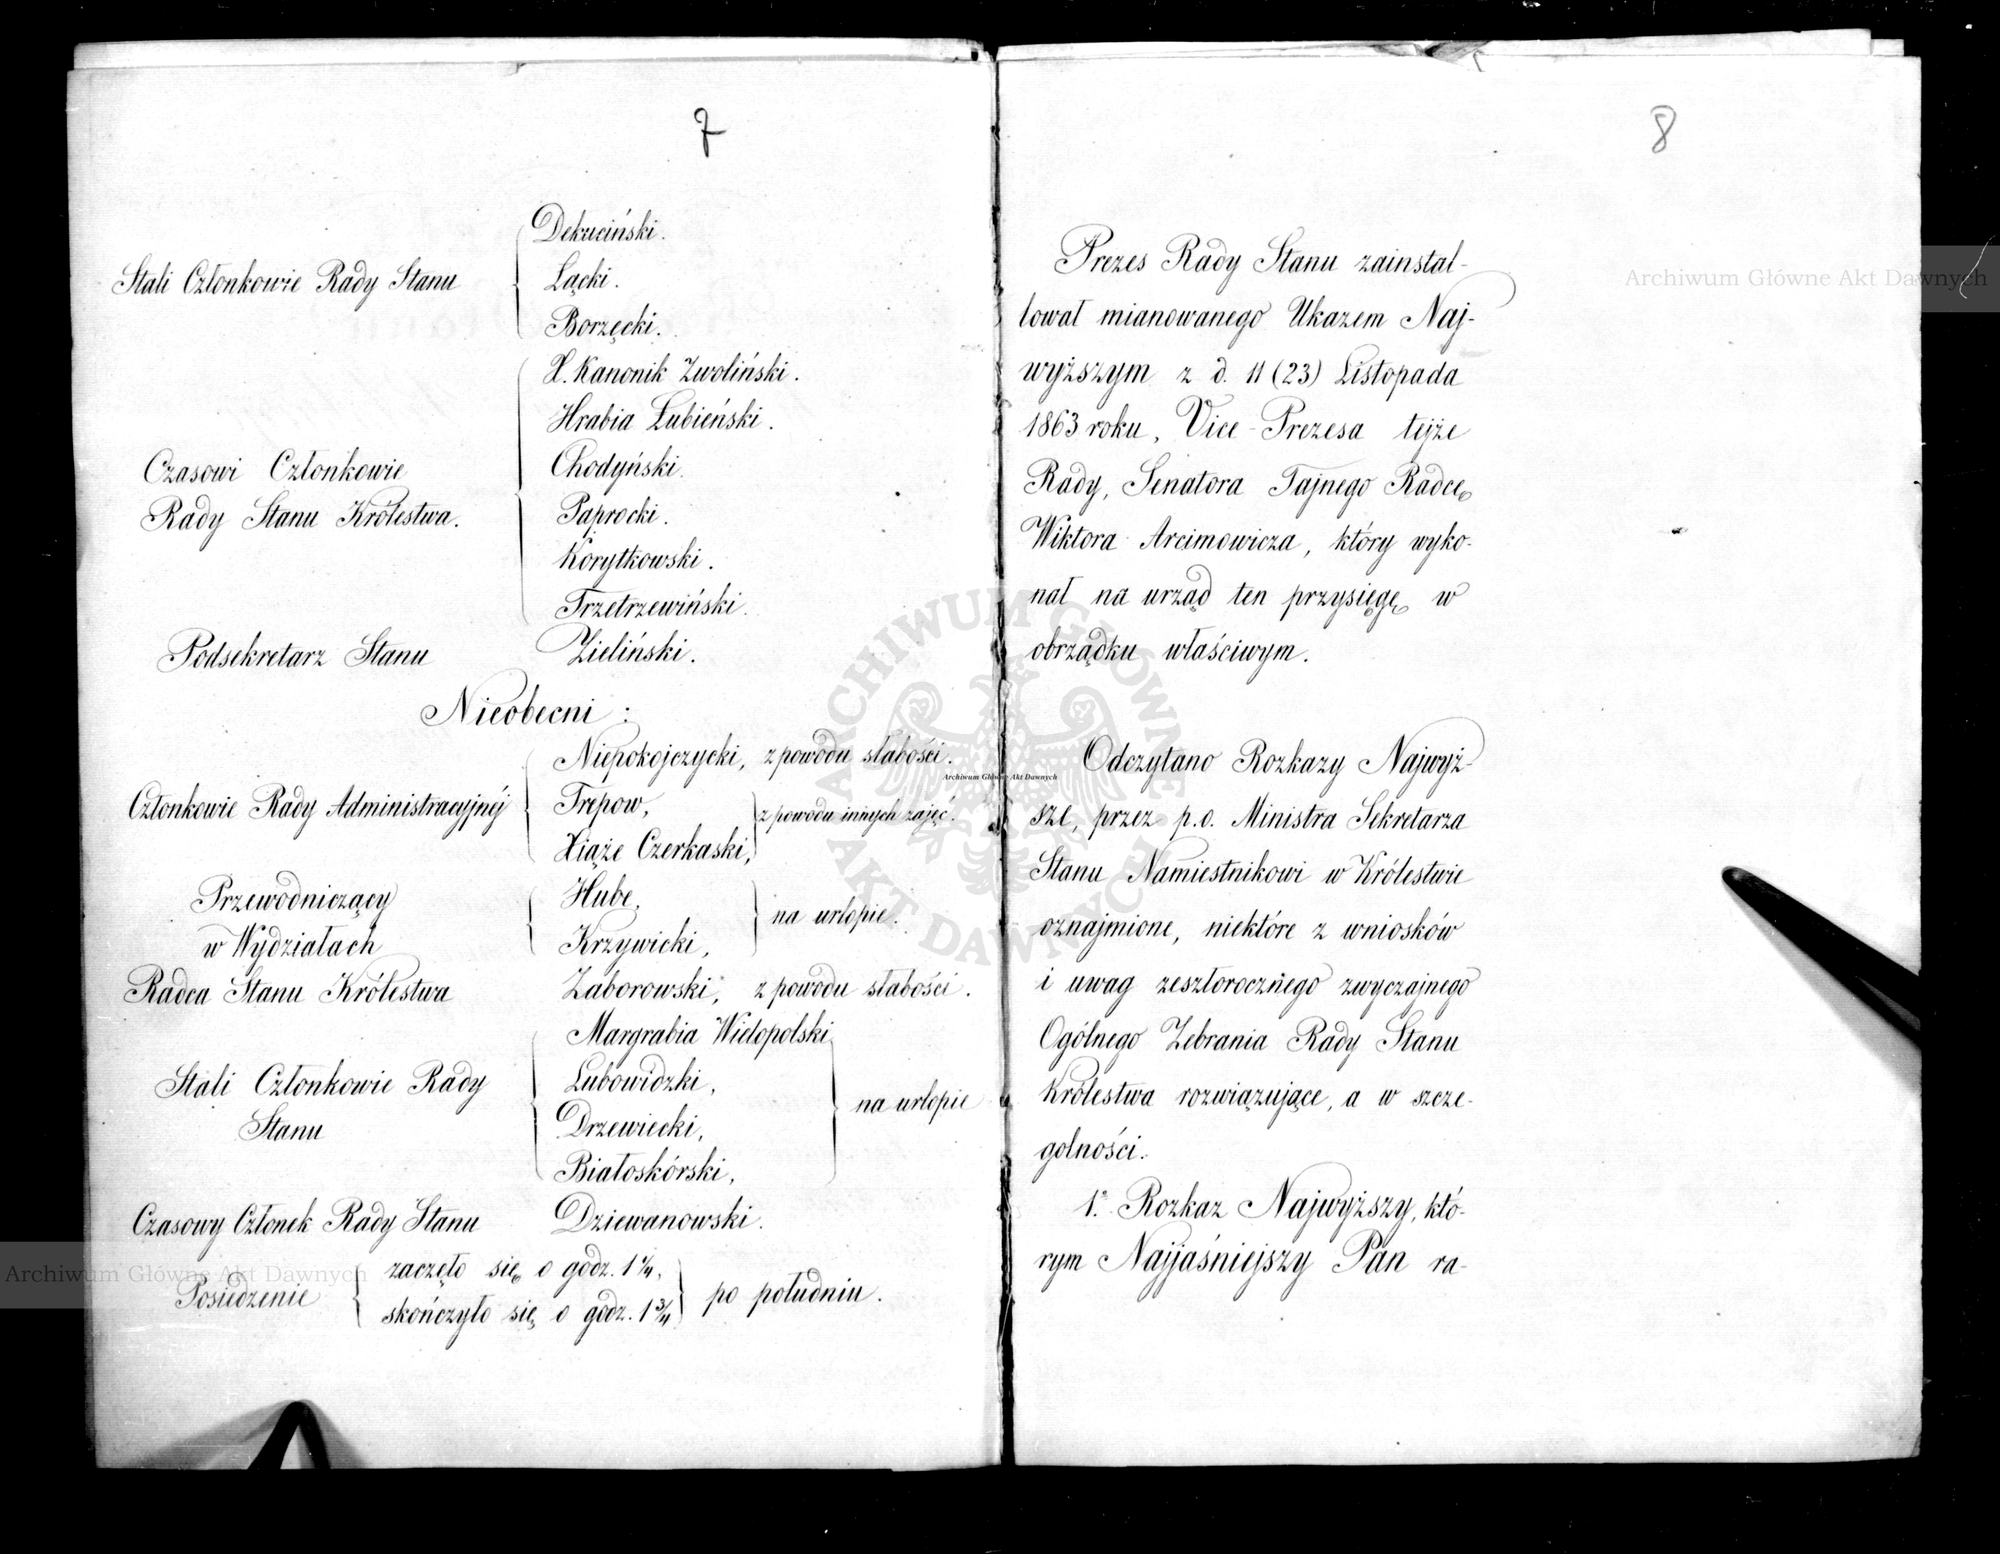 7
Dekuciński.
Stali Członkowie Rady Stanu
Łącki.
Borzęcki.
X. Kanonik Zwoliński.
Hrabia Łubieński.
Czasowi Członkowie
Chodyński.
Rady Stanu Królestwa.
Paprocki.
Korytkowski.
Trzetrzewiński.
Podsekretarz Stanu Zieliński.
Nieobecni:
Niepokojczycki, z powodu słabości.
Członkowie Rady Administracyjnéj
Trepow,
z powodu innych zajęć.
Xiąże Czerkaski,
Przewodniczący
w Wydziałach
Hube,
Krzywicki,
na urlopie.
Radca Stanu Królestwa Zaborowski, z powodu słabości.
Margrabia Wielopolski
Stali Członkowie Rady
Stanu
Lubowidzki,
Drzewiecki,
Białoskórski,
na urlopie
Czasowy Członek Rady Stanu Dziewanowski.
Posiedzenie
zaczęło się o godz. 1 1/4,
skończyło się o godz. 1 3/4
po południu.
8
Prezes Rady Stanu zainstal-
lował mianowanego Ukazem Naj-
wyższym z d. 11 (23) Listopada
1863 roku, Vice-Prezesa tejże
Rady, Senatora Tajnego Radcę
Wiktora Arcimowicza, który wyko-
nał na urząd ten przysięgę w
obrządku właściwym.
Odczytano Rozkazy Najwyż-
sze, przez p.o. Ministra Sekretarza
Stanu Namiestnikowi w Królestwie
oznajmione, niektóre z wniosków
i uwag zeszłorocznego zwyczajnego
Ogólnego Zebrania Rady Stanu
Królestwa rozwiązujące, a w szcze-
golności.
1.º Rozkaz Najwyższy, któ-
rym Najjaśniejszy Pan ra-
Archiwum Główne Akt Dawnych
Archiwum Główne Akt Dawnych
Archiwum Główne Akt Dawnych
ARCHIWUM GŁÓWNE AKT DAWNYCH